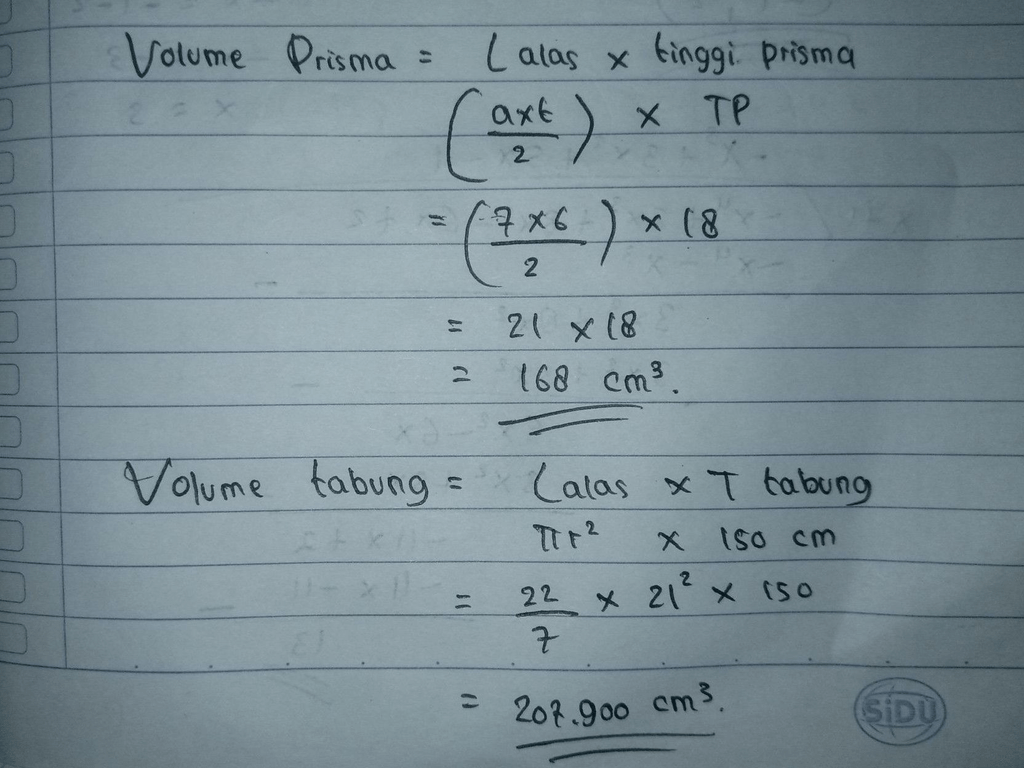 Volume Prisma = Lalas x tinggi prisma
(axt/2) x TP
= (7x6/2) x 18
= 21 x 18
= 168 cm³.
Volume tabung = Lalas x T tabung
πr² x 150 cm
= 22/7 x 21² x 150
= 207.900 cm³.
SiDU